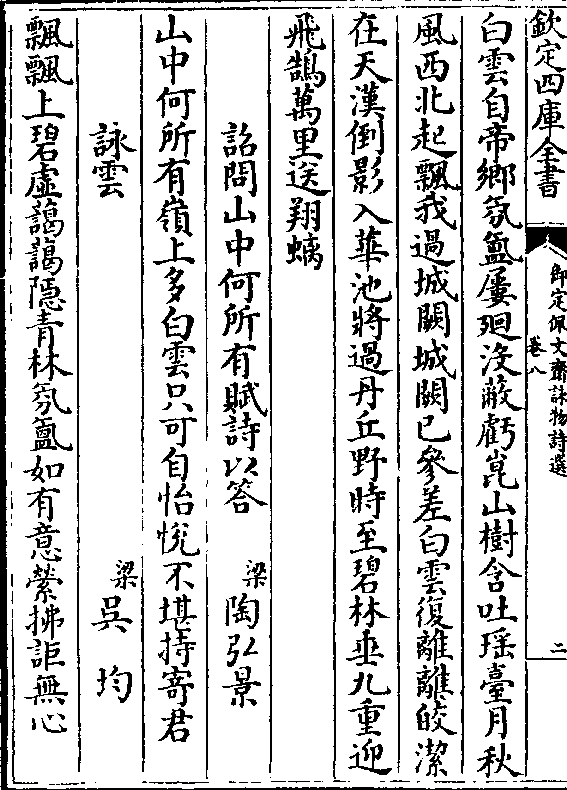 欽定四庫全書
御定佩文齋詠物詩選
卷八
二
白雲自帝鄉氛氳屢廻沒蔽虧崑山樹含吐瑶臺月秋
風西北起飄我過城闕城闕已參差白雲復離離皎潔
在天漢倒影入華池將過丹丘野時至碧林垂九重迎
飛鵠萬里送翔螭
詔問山中何所有賦詩以答 梁陶弘景
山中何所有嶺上多白雲只可自怡悅不堪持寄君
詠雲 梁吳均
飄飄上碧虛藹藹隱青林氛氳如有意縈拂詎無心